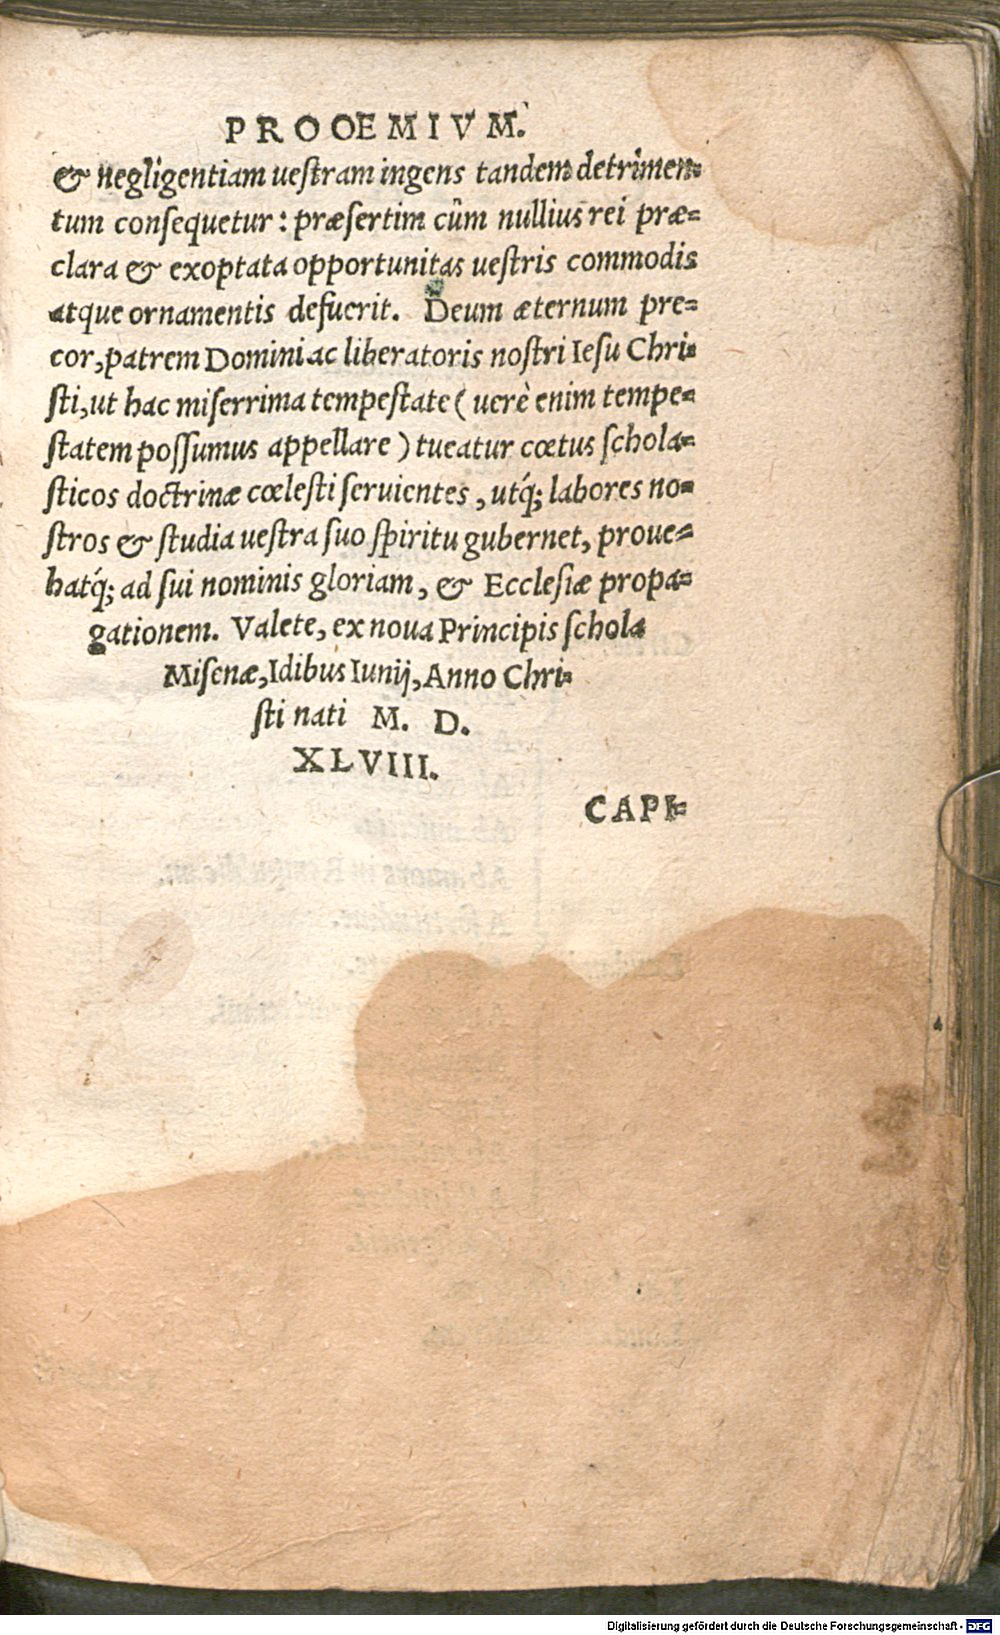 PROOEMIVM.
& negligentiam uestram ingens tandem detrimen=
tum consequetur: præsertim cûm nullius rei præ=
clara & exoptata opportunitas uestris commodis
atque ornamentis defuerit. Deum æternum pre=
cor, patrem Domini ac liberatoris nostri Iesu Chri=
sti, ut hac miserrima tempestate ( uerè enim tempe=
statem possumus appellare ) tueatur cœtus schola=
sticos doctrinæ cœlesti seruientes, utq́; labores no=
stros & studia uestra suo spiritu gubernet, proue=
hatq́; ad sui nominis gloriam, & Ecclesiæ propa=
gationem. Valete, ex noua Principis schola
Misenæ, Idibus Iunij, Anno Chri=
sti nati M. D.
XLVIII.
CAPI=
Digitalisierung gefördert durch die Deutsche Forschungsgemeinschaft - DFG